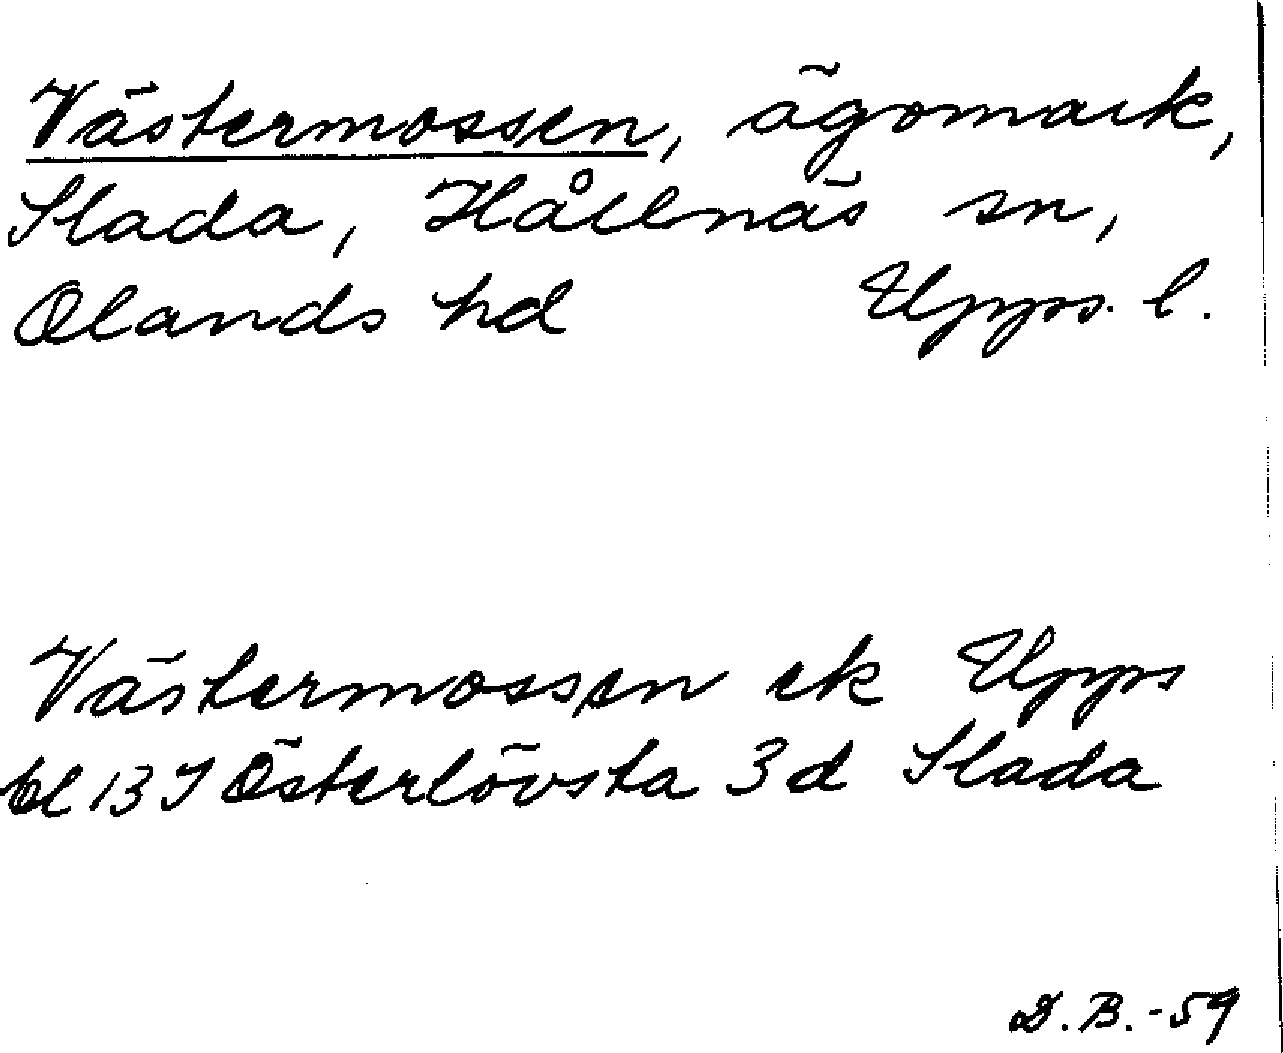 Västermossen, ägomark,
Slada, Hållnäs sn,
Olands hd Upps. l.
Västermossen ek Upps
bl 13 I Österlövsta 3d Slada
D. B. -59